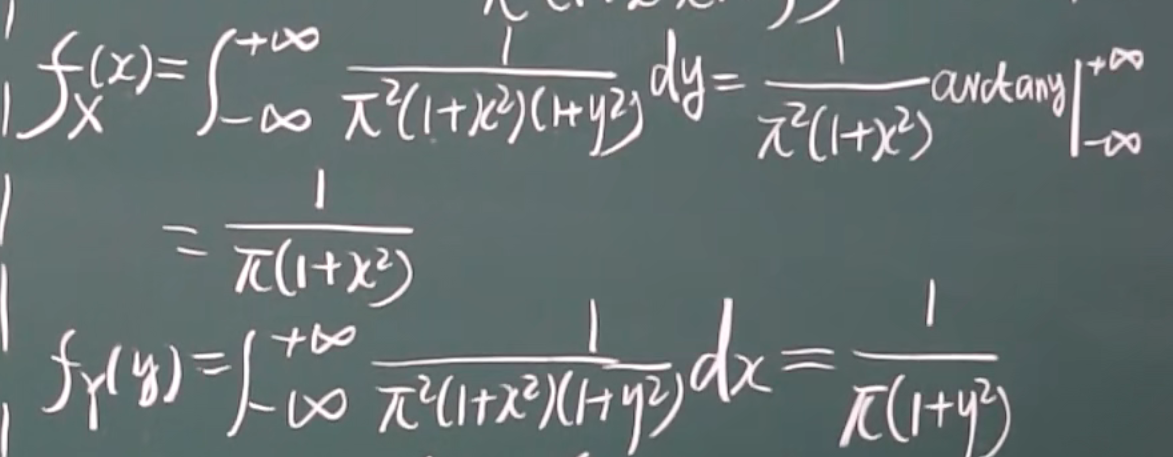 f_X(x) = ∫_{-∞}^{+∞} 1/(π²(1+x²)(1+y²)) dy = 1/(π²(1+x²)) arctany |_{-∞}^{+∞}
= 1/(π(1+x²))
f_Y(y) = ∫_{-∞}^{+∞} 1/(π²(1+x²)(1+y²)) dx = 1/(π(1+y²))